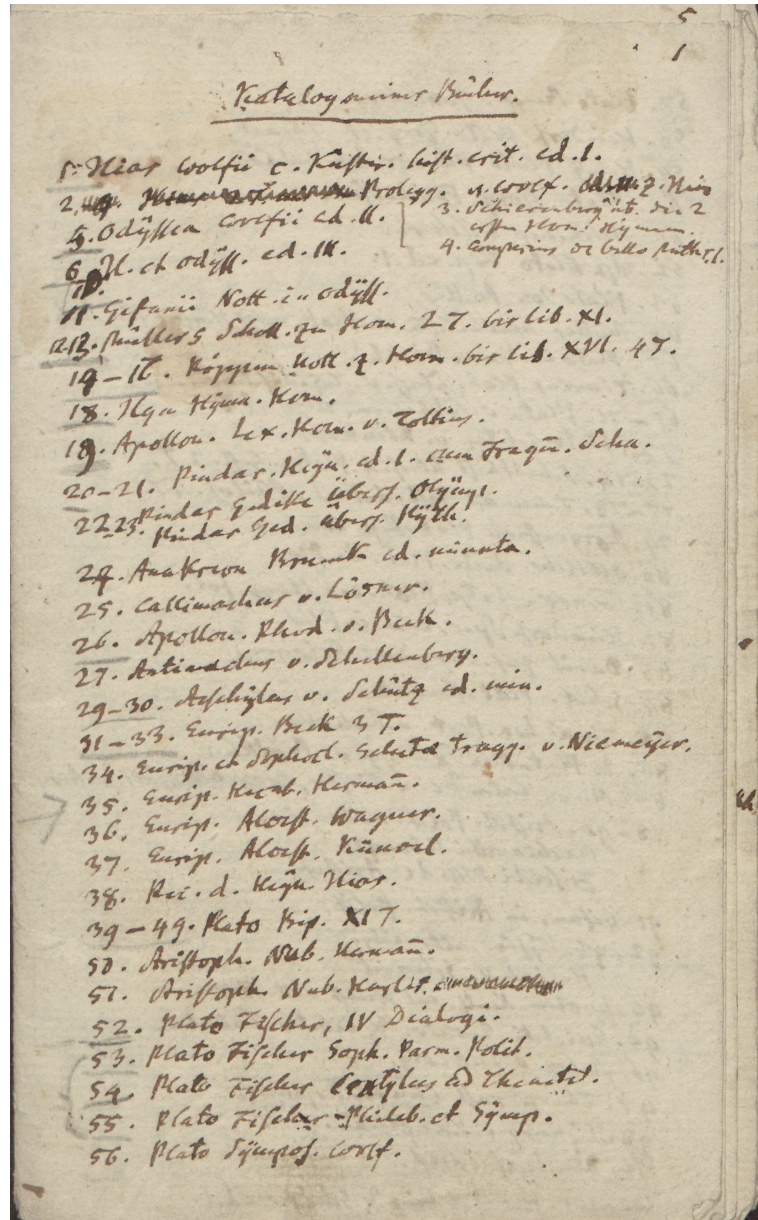 5
1
Katalog meiner Bücher.
1. Ilias Wolfii c. Küster. hist. crit. ed. I.
2. Prolegg. v. Wolf. z. Ilias
3. Schierenberg üb. die 2
ersten Hom. Hymnen.
5. Odyssea Wolfii ed. II.
4. de bello
6 Il. et Odyss. ed. III.
10.
11. Gifanii Nott. in Odyss.
12.13. Müllers Scholl. zu Hom. 2 T. bis lib. XI.
14–17. Köppen Nott. z. Hom. bis lib. XVI. 4 T.
18. Ilgen Hymn. Hom.
19. Apollon. Lex. Hom. v. Tollius.
20–21. Pindar. Heyn. ed. I. cum Fragm̄. Schn.
22.23. Pindar Gedike übers. Olymp.
Pindar Ged. übers. Pyth.
24. Anakreon Brunck ed. minuta.
25. Callimachus v. Lösner.
26. Apollon. Rhod. v. Beck.
27. Antimachus v. Schellenberg.
29–30. Aeschylus v. Schütz ed. min.
31–33. Eurip. Beck 3 T.
34. Eurip. et Sophocl. Selecta tragg. v. Niemeÿer.
35. Eurip. Hecub. Herman̄.
36. Eurip. Alcest. Wagner.
37. Eurip. Alcest. Kuinoel.
38. Rec. d. Heyn. Ilias.
39–49. Plato Bip. XI T.
50. Aristoph. Nub. Herman̄.
51. Aristoph. Nub. Harles.
52. Plato Fischer, IV Dialogi.
53. Plato Fischer Soph. Parm. Polit.
54. Plato Fischer Cratylus et Theaetet.
55. Plato Fischer Phileb. et Sÿmp.
56. Plato Sÿmpos. Wolf.